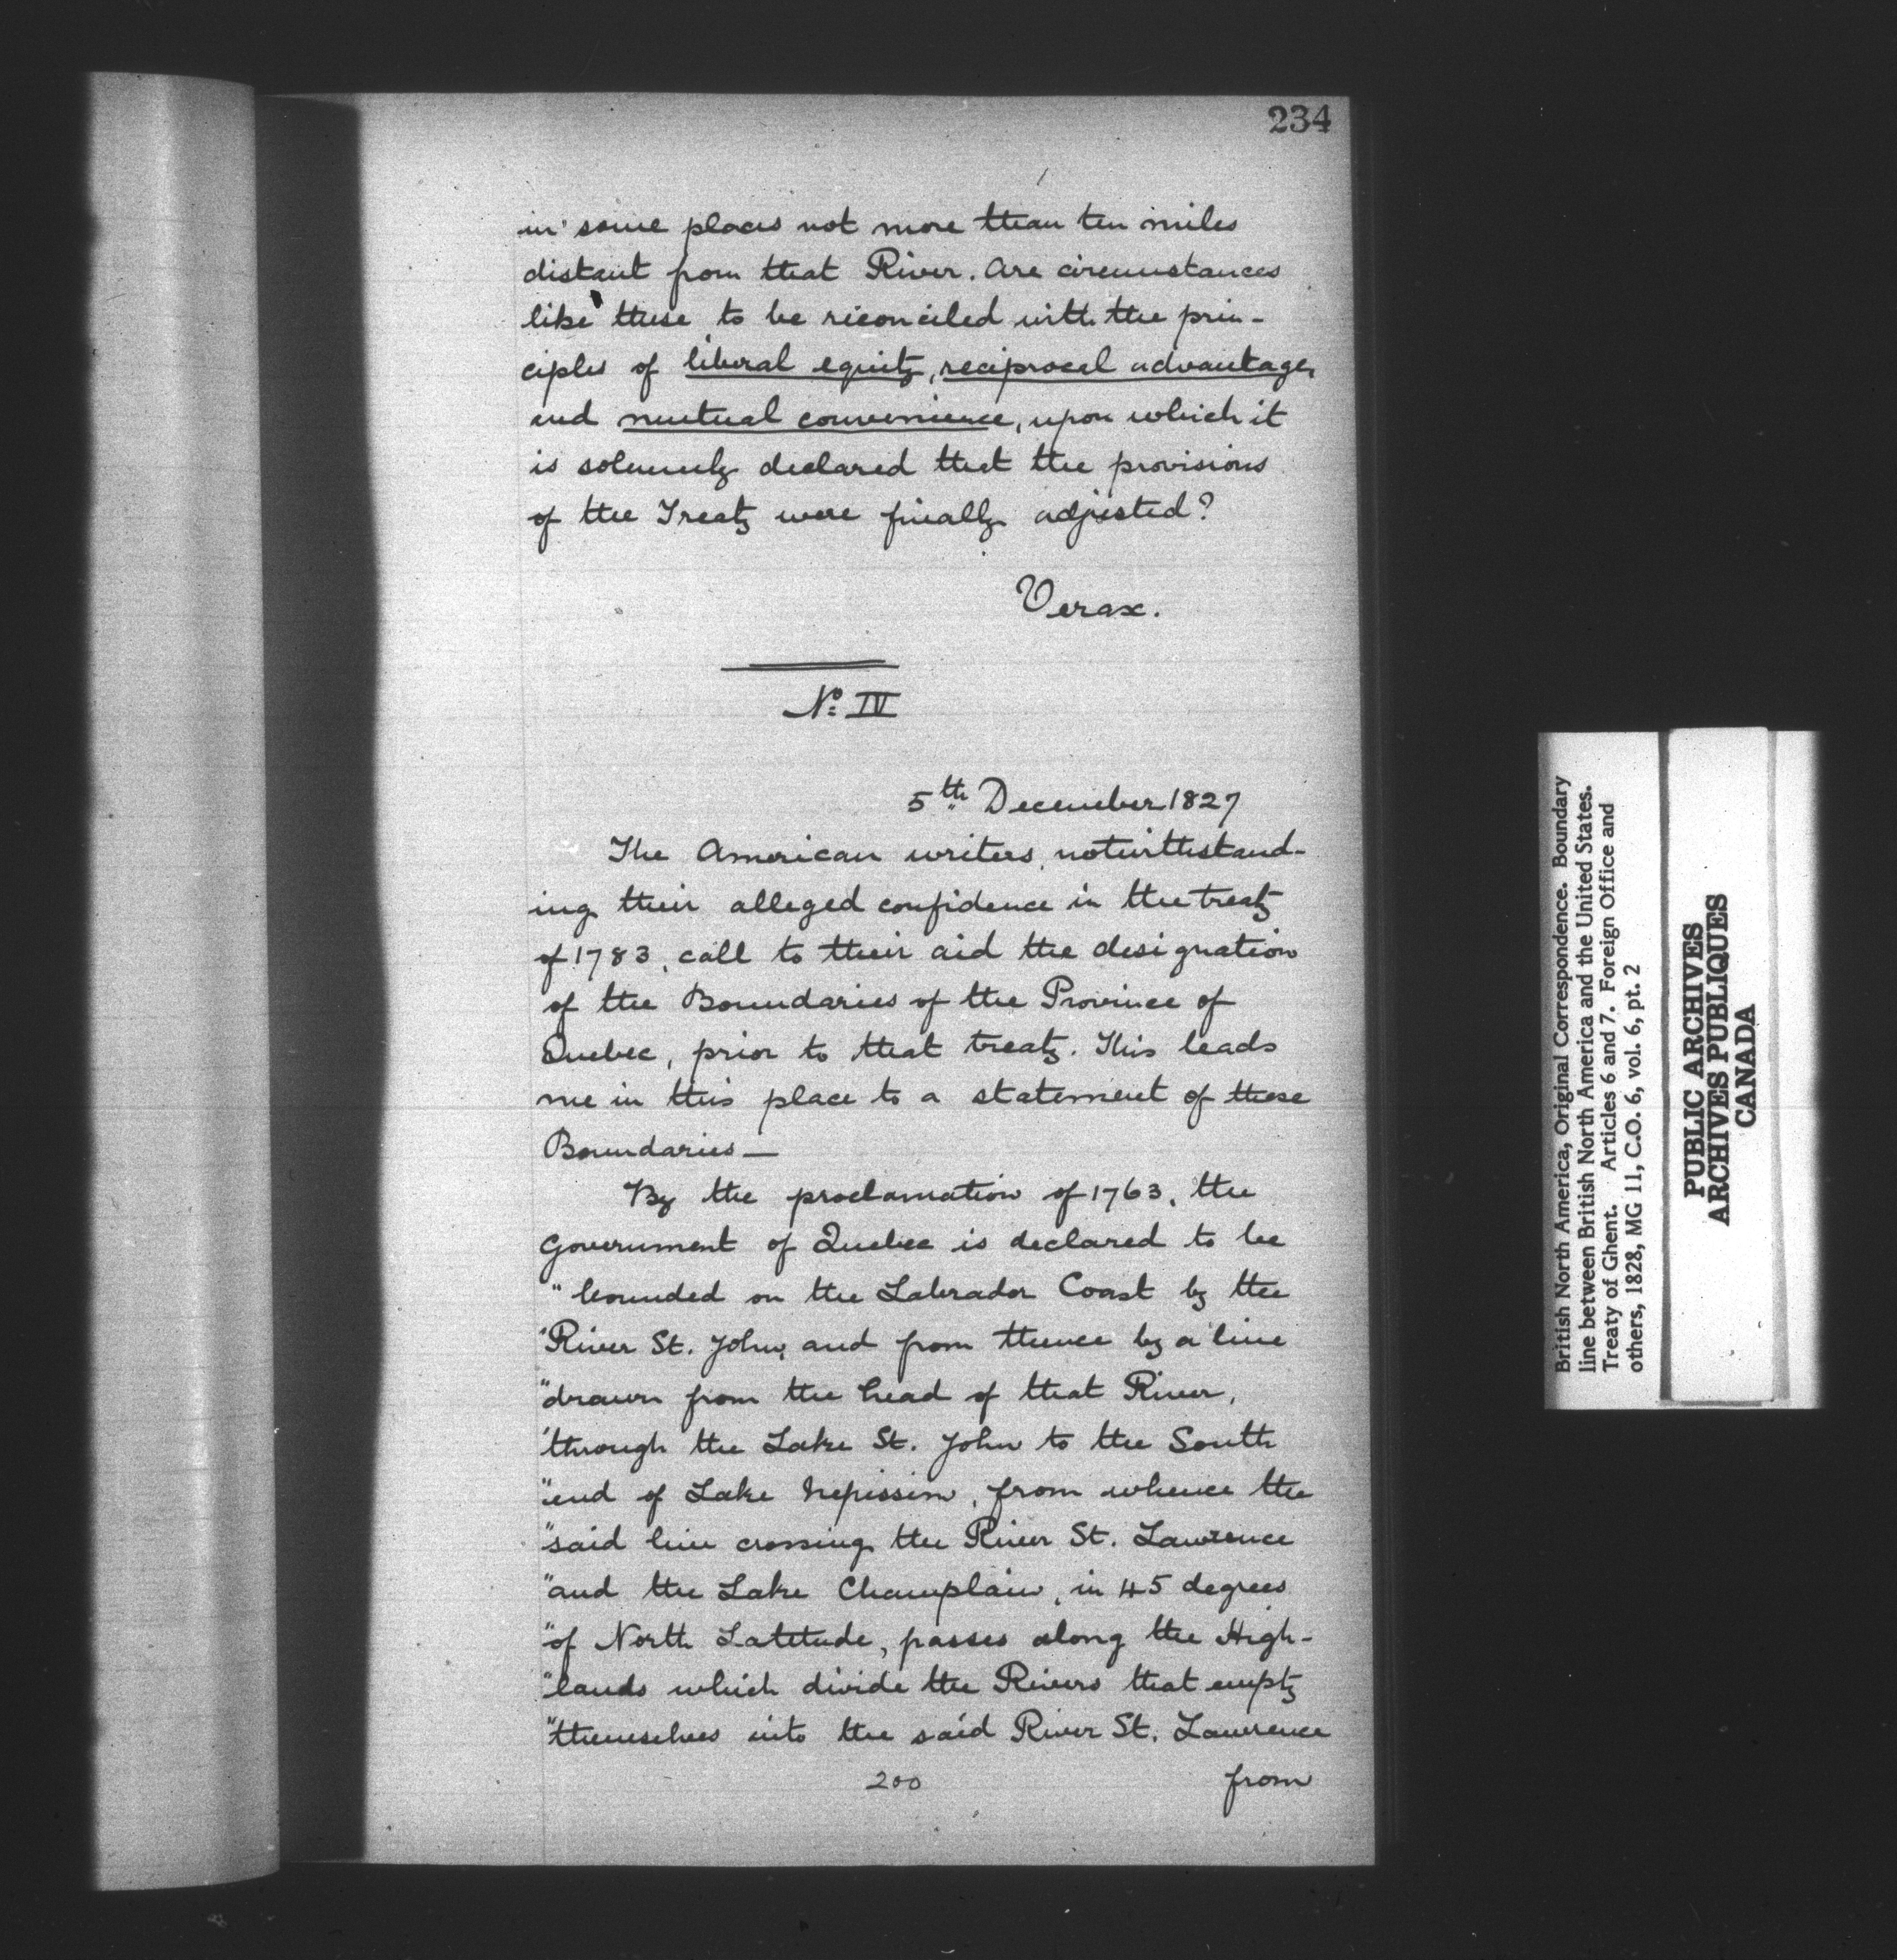 234
in some places not more than ten miles
distant from that River. Are circumstances
like these to be reconciled with the prin-
ciples of liberal equity, reciprocal advantage,
and mutual convenience, upon which it
is solemnly declared that the provisions
of the Treaty were finally adjusted?
Verax.
No. IV
5th December 1827
The American writers, notwithstand-
ing their alleged confidence in the treaty
of 1783, call to their aid the designation
of the Boundaries of the Province of
Quebec, prior to that treaty. This leads
me in this place to a statement of these
Boundaries—
By the proclamation of 1763, the
Government of Quebec is declared to be
"bounded on the Labrador Coast by the
"River St. John, and from thence by a line
"drawn from the head of that River,
"through the Lake St. John to the South
"end of Lake Nepissim, from whence the
"said line crossing the River St. Lawrence
"and the Lake Champlain, in 45 degrees
"of North Latitude, passes along the High-
"lands which divide the Rivers that empty
"themselves into the said River St. Lawrence
200 from
British North America, Original Correspondence. Boundary
line between British North America and the United States.
Treaty of Ghent. Articles 6 and 7. Foreign Office and
others, 1828, MG 11, C.O. 6, vol. 6, pt. 2
PUBLIC ARCHIVES
ARCHIVES PUBLIQUES
CANADA